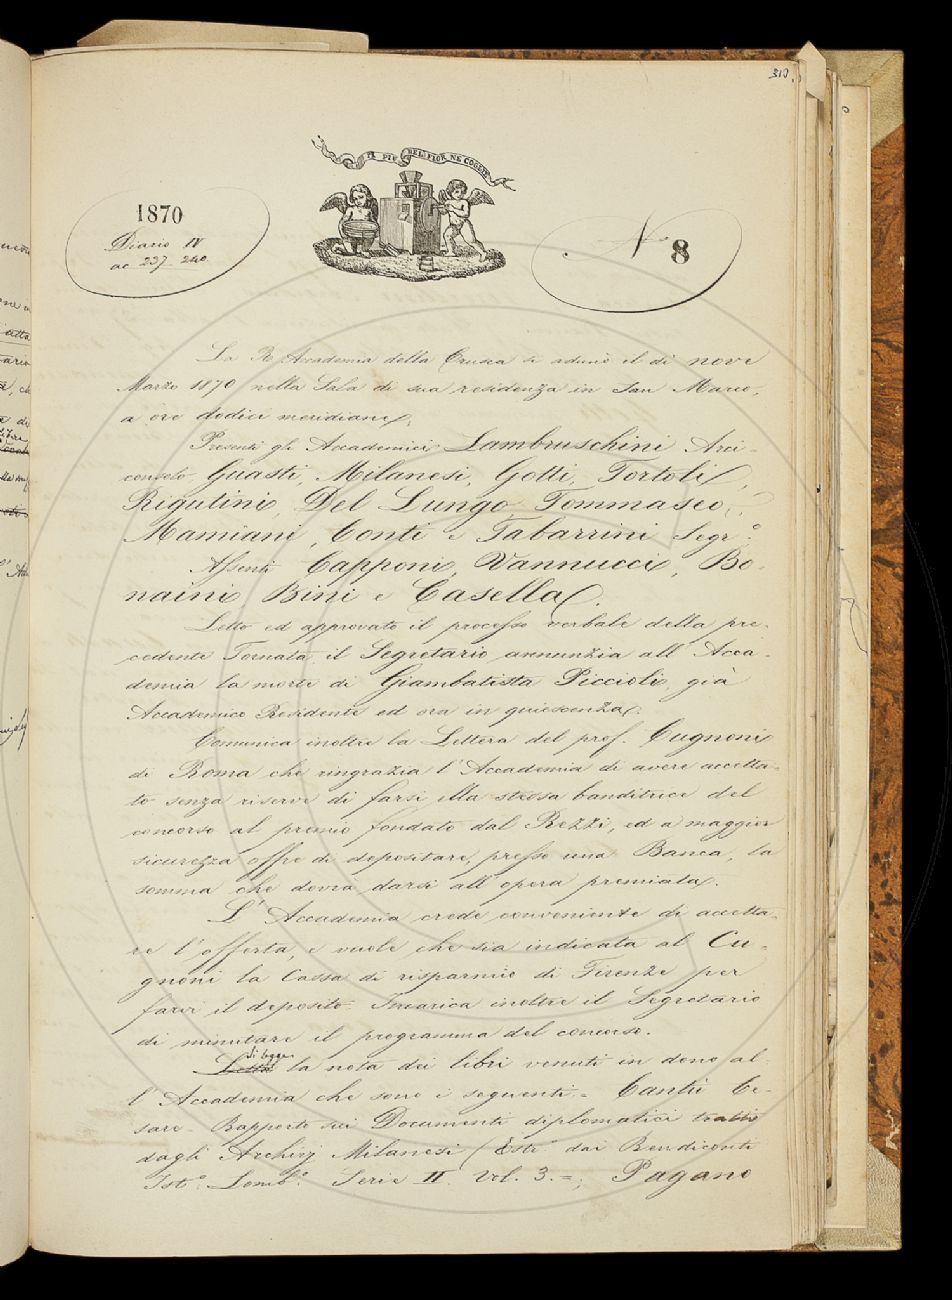 310.
IL PIÙ BEL FIOR NE COGLIE
1870
Diario IV
ac 237. 240.
N. 8
La R. Accademia della Crusca si adunò il dì nove
Marzo 1870 nella Sala di sua residenza in San Marco,
a ore dodici meridiane.
Presenti gli Accademici Lambruschini Arci-
consolo Guasti, Milanesi, Gotti, Tortoli,
Rigutini, Del Lungo, Tommaseo,
Mamiani, Conti e Tabarrini Segr.º
Assenti Capponi, Vannucci, Bo-
naini Bini e Casella.
Letto ed approvato il processo verbale della pre-
cedente Tornata, il Segretario annunzia all'Acca-
demia la morte di Giambatista Piccioli, già
Accademico Residente ed ora in quiescenza.
Comunica inoltre la Lettera del prof. Cugnoni
di Roma che ringrazia l'Accademia di avere accetta-
to senza riserve di farsi ella stessa banditrice del
concorso al premio fondato dal Rezzi, ed a maggior
sicurezza offre di depositare, presso una Banca, la
somma che dovrà darsi all'opera premiata.
L'Accademia crede conveniente di accetta-
re l'offerta, e vuole che sia indicata al Cu-
gnoni la Cassa di risparmio di Firenze per
farvi il deposito. Incarica inoltre il Segretario
di minutare il programma del concorso.
si legge
la nota dei libri venuti in dono al-
l'Accademia che sono i seguenti = Cantù Ce-
sare - Rapporto sui Documenti diplomatici tratti
dagli Archivj Milanesi (Estr. dai Rendiconti
Ist.º Lomb.º Serie II. Vol. 3. =; Pagano